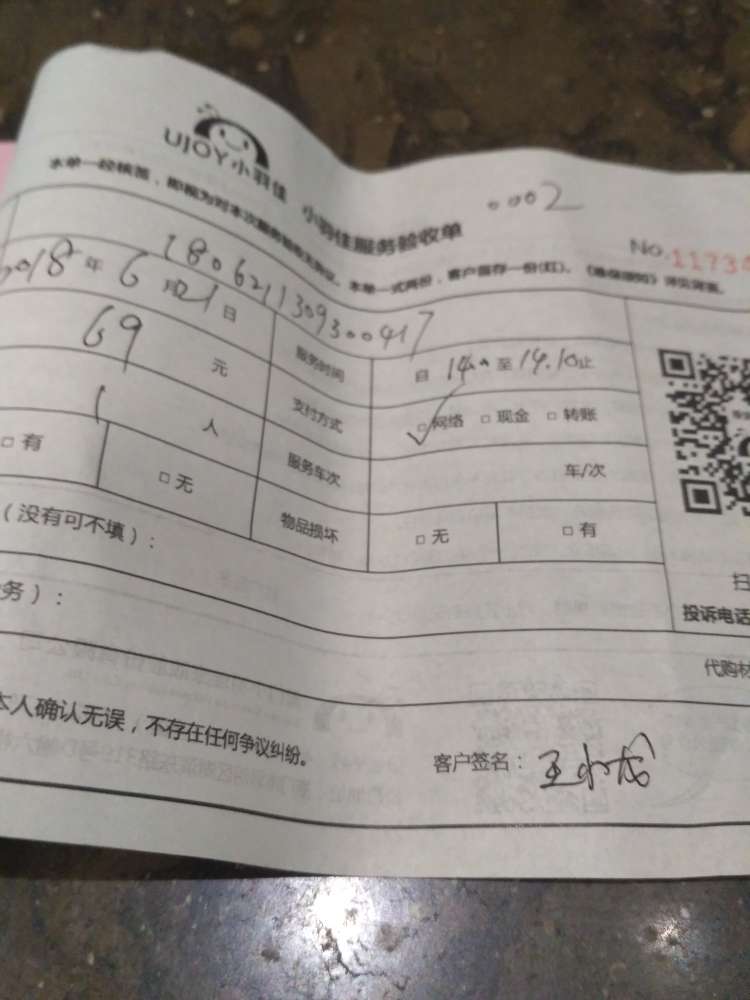 UJOY小羽佳 小羽佳服务验收单
0002
No.11734
本单一经核签，即视为对本次服务验收无异议。本单一式两份，客户留存一份(红)。
1806211309300417
2018年6月21日 服务时间 自14.00至14.10止
69元 支付方式 □网络 □现金 □转账
1人 服务车次 车/次
□有 □无 物品损坏 □无 □有
（没有可不填）：
务）：
扫
投诉电话
代购材
本人确认无误，不存在任何争议纠纷。
客户签名：王小龙